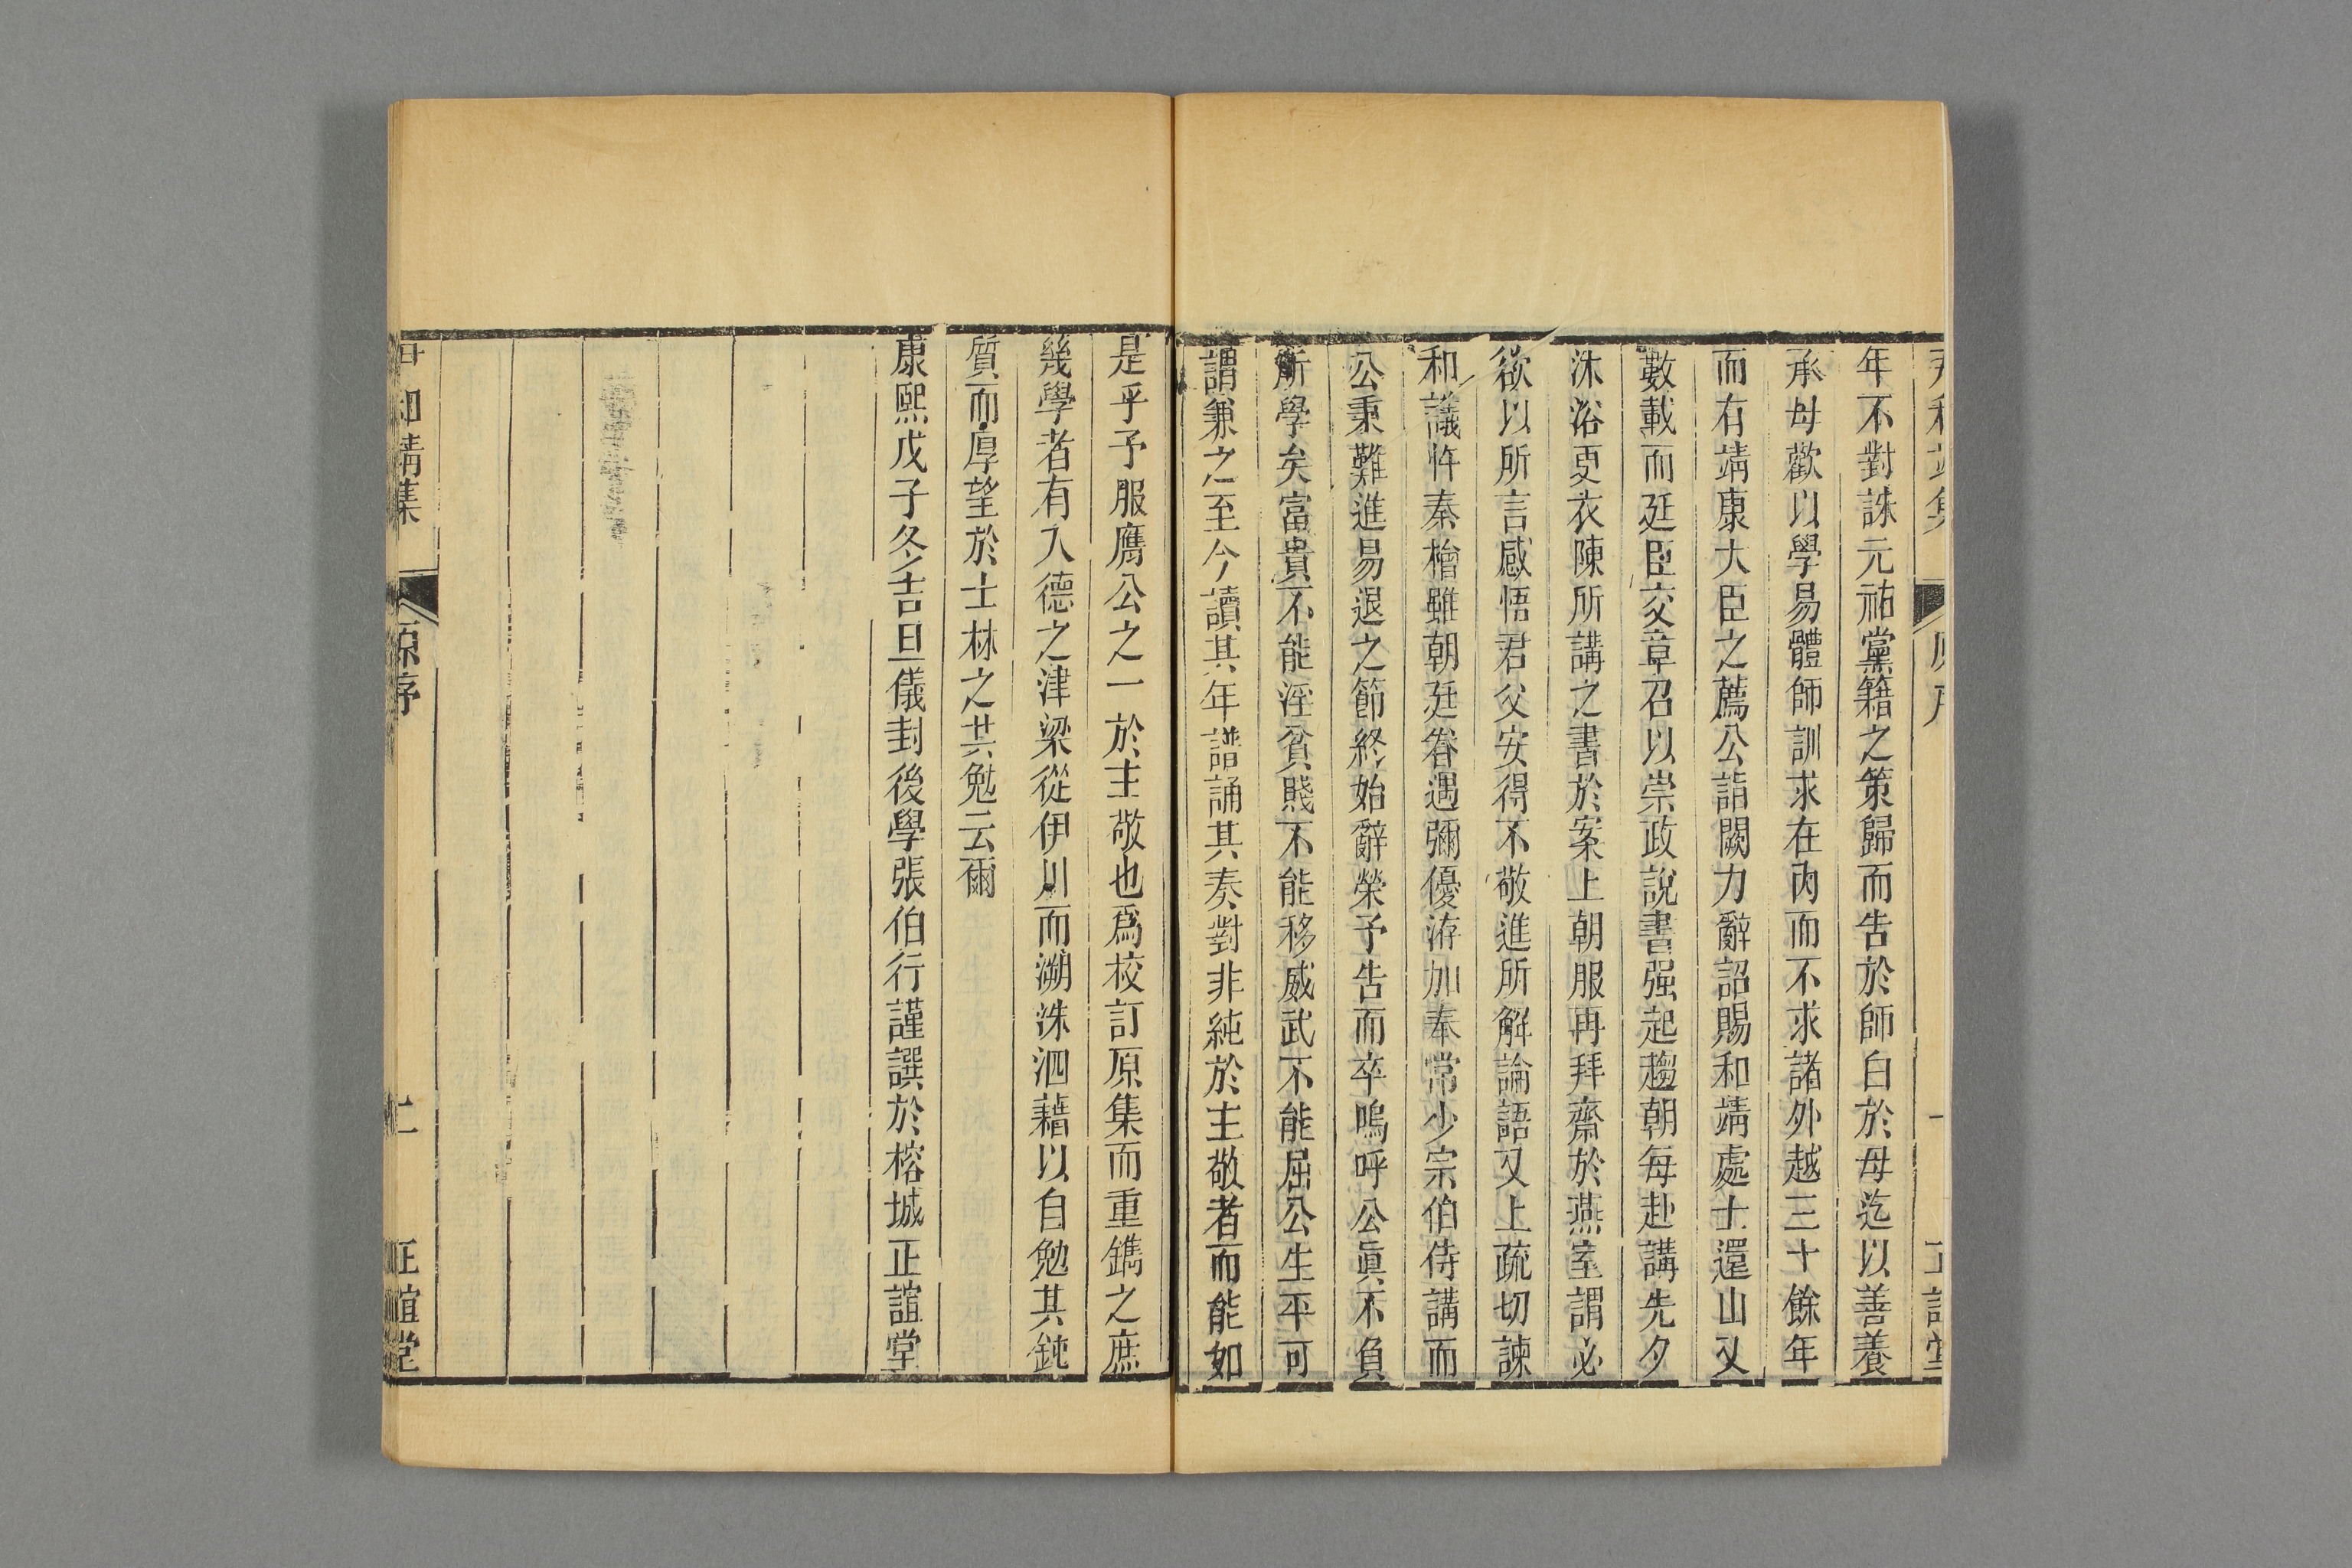 年不對誅元祐黨籍之策歸而告於師白於母迄以善養
承母歡以學易體師訓求在內而不求諸外越三十餘年
而有靖康大臣之薦公詣闕力辭詔賜和靖處士還山又
數載而廷臣交章召以崇政說書强起趨朝每赴講先夕
沐浴更衣陳所講之書於案上朝服再拜齋於燕室謂必
欲以所言感悟君父安得不敬進所解論語又上疏切諫
和議忤秦檜雖朝廷眷遇彌優洊加奉常少宗伯侍講而
公秉難進易退之節終始辭榮予告而卒嗚呼公眞不負
所學矣富貴不能淫貧賤不能移威武不能屈公生平可
謂兼之至今讀其年譜誦其奏對非純於主敬者而能如
是乎予服膺公之一於主敬也爲校訂原集而重鐫之庶
幾學者有入德之津梁從伊川而溯洙泗藉以自勉其鈍
質而厚望於士林之共勉云爾
康熙戊子冬吉旦儀封後學張伯行謹譔於榕城正誼堂
和靖集 原序 正誼堂